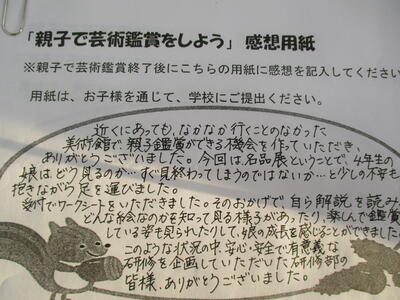 「親子で芸術鑑賞をしよう」感想用紙
※親子で芸術鑑賞終了後にこちらの用紙に感想を記入してください
用紙は、お子様を通じて、学校にご提出ください。
近くにあっても、なかなか行くことのなかった
美術館で、親子鑑賞ができる機会を作っていただき、
ありがとうございました。今回は名品展ということで、4年生の
娘はどう見るのか…すぐ見終わってしまうのではないか…と少しの不安も
抱きながら足を運びました。
受付でワークシートをいただきました。そのおかげで、自ら解説を読み、
どんな絵なのかを知って見る様子があったり、楽しんで鑑賞
している姿も見られたりして、娘の成長を感じることができました。
このような状況の中、安心・安全で有意義な
研修を企画していただいた研修部の
皆様、ありがとうございました。